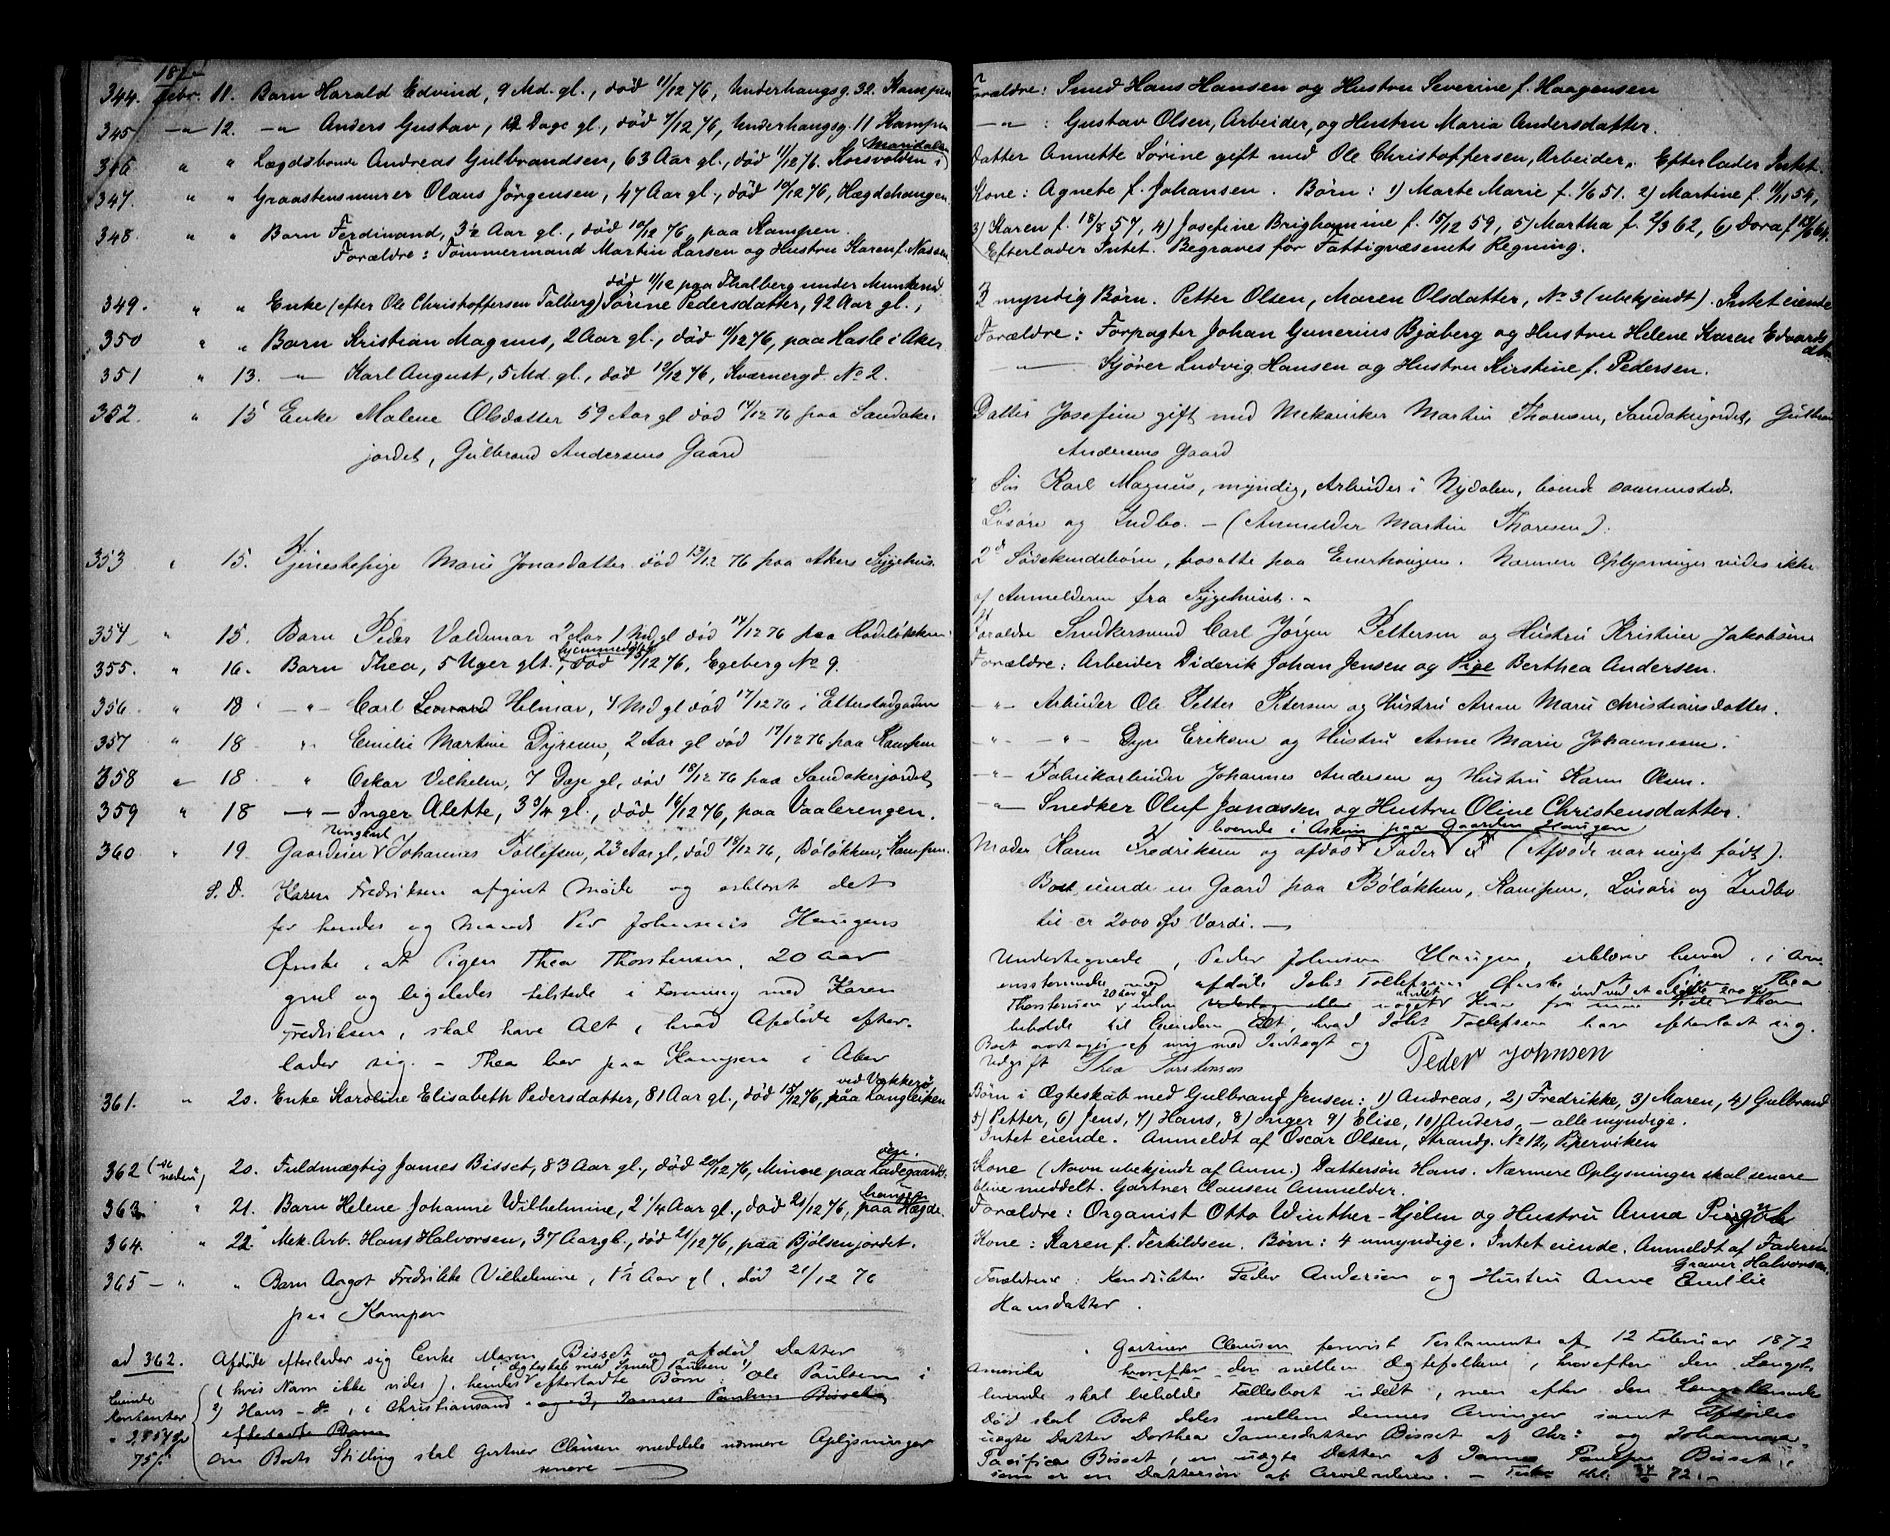 187
344. Febr. 11. Barn Harald Edvind, 9 Md. gl., død 11/12 76, Underhaugsg. 32. Kampen
345 -"- 12. -"- Anders Gustav, 12 Dage gl., død 7/12 76, Underhaugsg. 11 Kampen
Mandalen
346 " " Lægdsbonde Andreas Gulbrandsen, 63 Aar gl., død 11/12 76. Korsvolden i
347. " " Graastensmurer Olaus Jørgensen, 47 Aar gl., død 10/12 76, Hægdehaugen
348. " " Barn Ferdinand, 3½ Aar gl., død 10/12 76, paa Kampen.
Forældre: Tømmermand Martin Larsen og Hustru Karen f. Nassen
død 11/12 paa Thalberg under Munkerud
349. " " Enke (efter Ole Christoffersen Talberg) Sørine Pedersdatter, 92 Aar gl.,
350 " " Barn Kristian Magnus, 2 Aar gl., død 11/12 76, paa Hasle i Aker
351 " 13. -"- Karl August, 5 Md. gl., død 12/12 76, Kværnergd No 2.
352. " 15 Enke Malene Olsdatter 59 Aar gl død 14/12 76 paa Sandaker-
jordet, Gulbrand Andersens Gaard
353 " 15. Tjenestepige Marie Jonasdatter død 13/12 76 paa Akers Sygehus.
354 " 15. Barn Peder Valdemar 2 Aar 1 Md. gl død 14/12 76 paa Rodeløkken
hjemmedøbt
355. " 16. Barn Thea, 5 Uger glt., død 15/12 76, Egeberg No 9.
356 " 18 -"- Carl Leonard Hilmar, 4 Md gl død 17/12 76 i Etterstadgaden
357 " 18 " Emilie Martine Dyresen, 2 Aar gl død 17/12 76 paa Kampen
358 " 18 " Oskar Vilhelm, 7 Dage gl, død 18/12 76 paa Sandakerjordet
359 " 18 -"- Inger Alette, 3 3/4 gl., død 16/12 76, paa Vaalerengen.
Ungkarl
360 " 19. Gaardeier Johannes Tollefsen, 23 Aar gl, død 18/12 76, Bøløkken, Kampen.
S. D. Karen Fredriksen afgivet Møde og erklæret det
for hendes og Mands Per Johnsens Haugens
Ønske, at Pigen Thea Thorstensen, 20 Aar
gml og ligeledes tilstede i Forening med Karen
Fredriksen, skal have Alt, hvad Afdøde efter-
lader sig. - Thea bor paa Kampen i Aker
ved Vækkerø
361. " 20. Enke Karoline Elisabeth Pedersdatter, 81 Aar gl., død 15/12 76, paa Langleiken
362 (se neden) 20. Fuldmægtig James Bisset, 83 Aar gl., død 20/12 76, Minne paa Ladegaards-
øen.
363. " 21. Barn Helene Johanne Wilhelmine, 2 1/4 Aar gl., død 20/12 76, paa Hægde-
haugen
364. " 22. Mek. Arb. Hans Halvorsen, 37 Aar gl., død 21/12 76, paa Bjølsenjordet.
365 - " " Barn Aagot Fredrikke Vilhelmine, 1½ Aar gl, død 21/12 76
paa Kampen
ad 362. Afdøde efterlader sig Enke Maren Bisset og afdød Datter
(hvis Navn ikke vides), hendes i Ægteskab med Paulsen efterladte Børn: 1) Ole Paulsen i
2) Hans - do, i Christiansand og 3, James Paulsen Bisset
efterladte Børn
Om Boets Stilling skal Gartner Clausen meddele nærmere Oplysninger
senere
Forældre: Smed Hans Hansen og Hustru Severine f. Haagensen
-"- : Gustav Olsen, Arbeider, og Hustru Maria Andersdatter.
Datter Annette Sørine gift med Ole Christoffersen, Arbeider. Efterlader Intet.
Kone: Agnete f. Johansen. Børn: 1) Marte Marie f. 1/6 51. 2) Martine f. 11/1 54,
3) Karen f. 18/8 57, 4) Josefine Brighamine f. 15/12 59, 5) Martha f. 2/3 62, 6) Dora f 12/6 64.
Efterlader Intet. Begraves for Fattigvæsenets Regning.
3 myndig Børn. Petter Olsen, Maren Olsdatter, No 3 (ubekjendt). Intet eiende
Forældre: Forpagter Johan Gunerius Bjøberg og Hustru Helene Karen Edvards
dtr
-"- Kjører Ludvig Hansen og Hustru Kirstine f. Pedersen.
Datter Josefine gift med Mekaniker Martin Thoresen, Sandakerjordet, Gulbrand
Andersens Gaard
Søn Karl Magnus, myndig, Arbeider i Nydalen, boende sammesteds.
Løsøre og Indbo. - (Anmelder Martin Thoresen).
2 Sødskendebørn, bosatte paa Enerhaugen. Nærmere Oplysninger vides ikke
af Anmelderen fra Sygehuset.
Forældre Snedkersvend Carl Jørgen Pettersen og Hustru Kristine Jakobsen
Forældre: Arbeider Diderik Johan Jensen og Pige Berthea Andersen.
-"- Arbeider Ole Petter Petersen og Hustru Anne Marie Christiansdatter.
-"- -"- Dyre Eriksen og Hustru Anne Marie Johannesen.
-"- Fabrikarbeider Johannes Andersen og Hustru Karen Olsen.
-"- Snedker Oluf Jonassen og Hustru Oline Christensdatter.
boende i Askim paa Gaarden Haugen
Moder Karen Fredriksen og afdød Fader (Afdøde var uægte født).
Boet eiende en Gaard paa Bøløkken, Kampen, Løsøre og Indbo
til ca 2000 Værdi. -
Undertegnede, Peder Johnsen Haugen, erklærer herved, i Over-
ensstemmelse med afdøde Johs Tollefsens Ønske
Thorstensen 20 Aar gl
beholde til Eiendom Alt, hvad Johs Tollefsen har efterladt sig.
Boet overtages af mig med Indtægt og
Udgift Thea Torstensen Peder Johnsen
Børn i Ægteskab med Gulbrand Jensen: 1) Andreas, 2) Fredrikke, 3) Maren, 4) Gulbrand
5) Petter, 6) Jens, 7) Hans, 8) Inger 9) Elise, 10) Anders, - alle myndige.
Intet eiende. Anmeldt af Oscar Olsen, Strandg. No 12, Pipervigen
Kone (Navn ubekjendt af Anm.) Dattersøn Hans. Nærmere Oplysninger skal senere
blive meddelt. Gartner Clausen Anmelder.
Forældre: Organist Otto Winther-Hjelm og Hustru Anna
Kone: Karen f. Terkildsen. Børn: 4 umyndige. Intet eiende. Anmeldt af Faderen
Graver Halvorsen.
Forældrene: Konduktør Peder Andersen og Hustru Anne Emilie
Hansdatter.
Gartner Clausen forevist Testamente af 12 Februar 1872
Amerika hvorefter den mellem Ægtefolkene, hvorefter den Længst-
levende skal beholde Fællesboet udelt, men efter den Længstlevendes
Død skal Boet deles mellem dennes Arvinger samt Afdødes
uægte Datter Dorthea Jamesdatter Bisset af Chr: og Johanna
Pacifica Bisset, en uægte Datter af James Paulsen Bisset,
som er en Dattersøn af Arveladeren. -